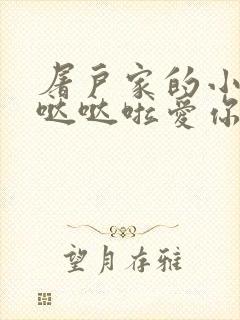 屠户家的小
哒哒啦爱你
望月存雅